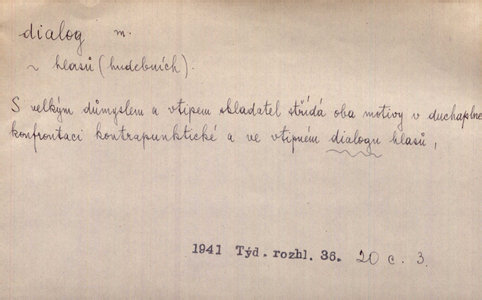 dialog m.
~ hlasů (hudebních).
S velkým důmyslem a vtipem skladatel střídá oba motivy v duchaplné
konfrontaci kontrapunktické a ve vtipném dialogu hlasů,
1941 Týd. rozhl. 36. 20 c. 3.